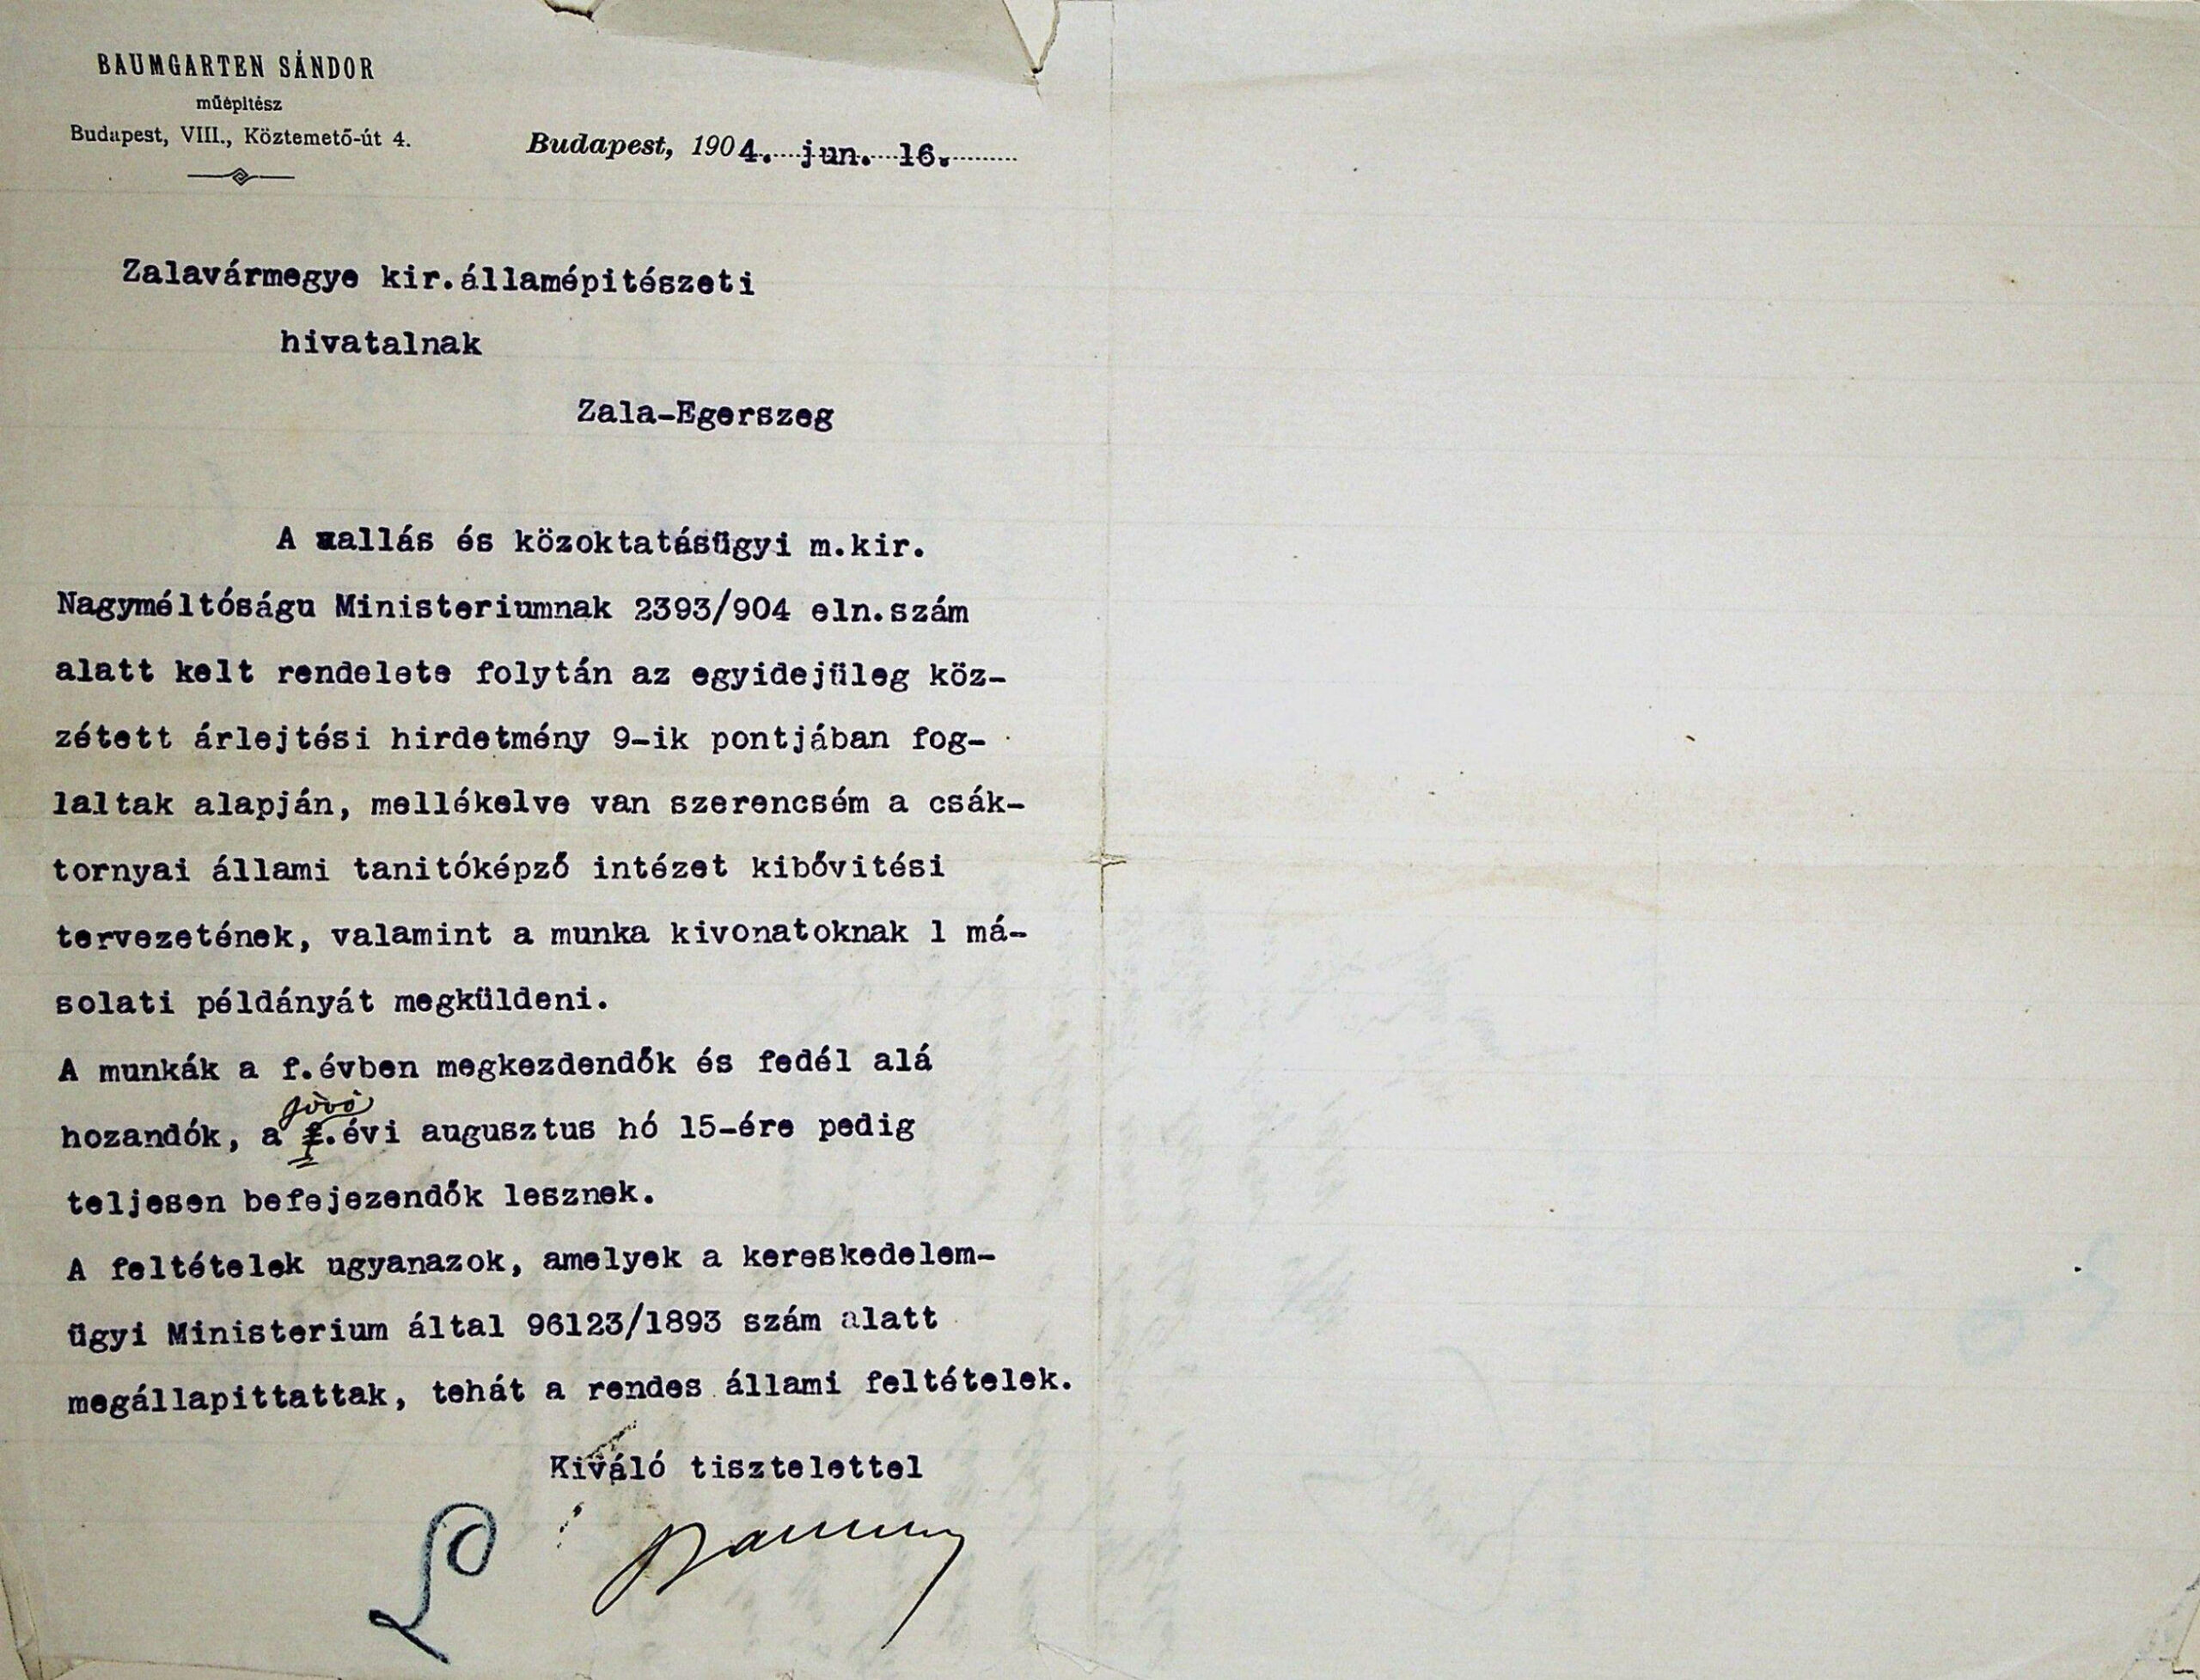 BAUMGARTEN SÁNDOR
műépitész
Budapest, VIII., Köztemető-út 4.
Budapest, 1904. jun. 16.
Zalavármegye kir.államépitészeti
hivatalnak
Zala-Egerszeg
A vallás és közoktatásügyi m.kir.
Nagyméltóságu Ministeriumnak 2393/904 eln.szám
alatt kelt rendelete folytán az egyidejüleg köz-
zétett árlejtési hirdetmény 9-ik pontjában fog-
laltak alapján, mellékelve van szerencsém a csák-
tornyai állami tanitóképző intézet kibővitési
tervezetének, valamint a munka kivonatoknak 1 má-
solati példányát megküldeni.
A munkák a f.évben megkezdendők és fedél alá
jövő
hozandók, a f.évi augusztus hó 15-ére pedig
teljesen befejezendők lesznek.
A feltételek ugyanazok, amelyek a kereskedelem-
ügyi Ministerium által 96123/1893 szám alatt
megállapittattak, tehát a rendes állami feltételek.
Kiváló tisztelettel